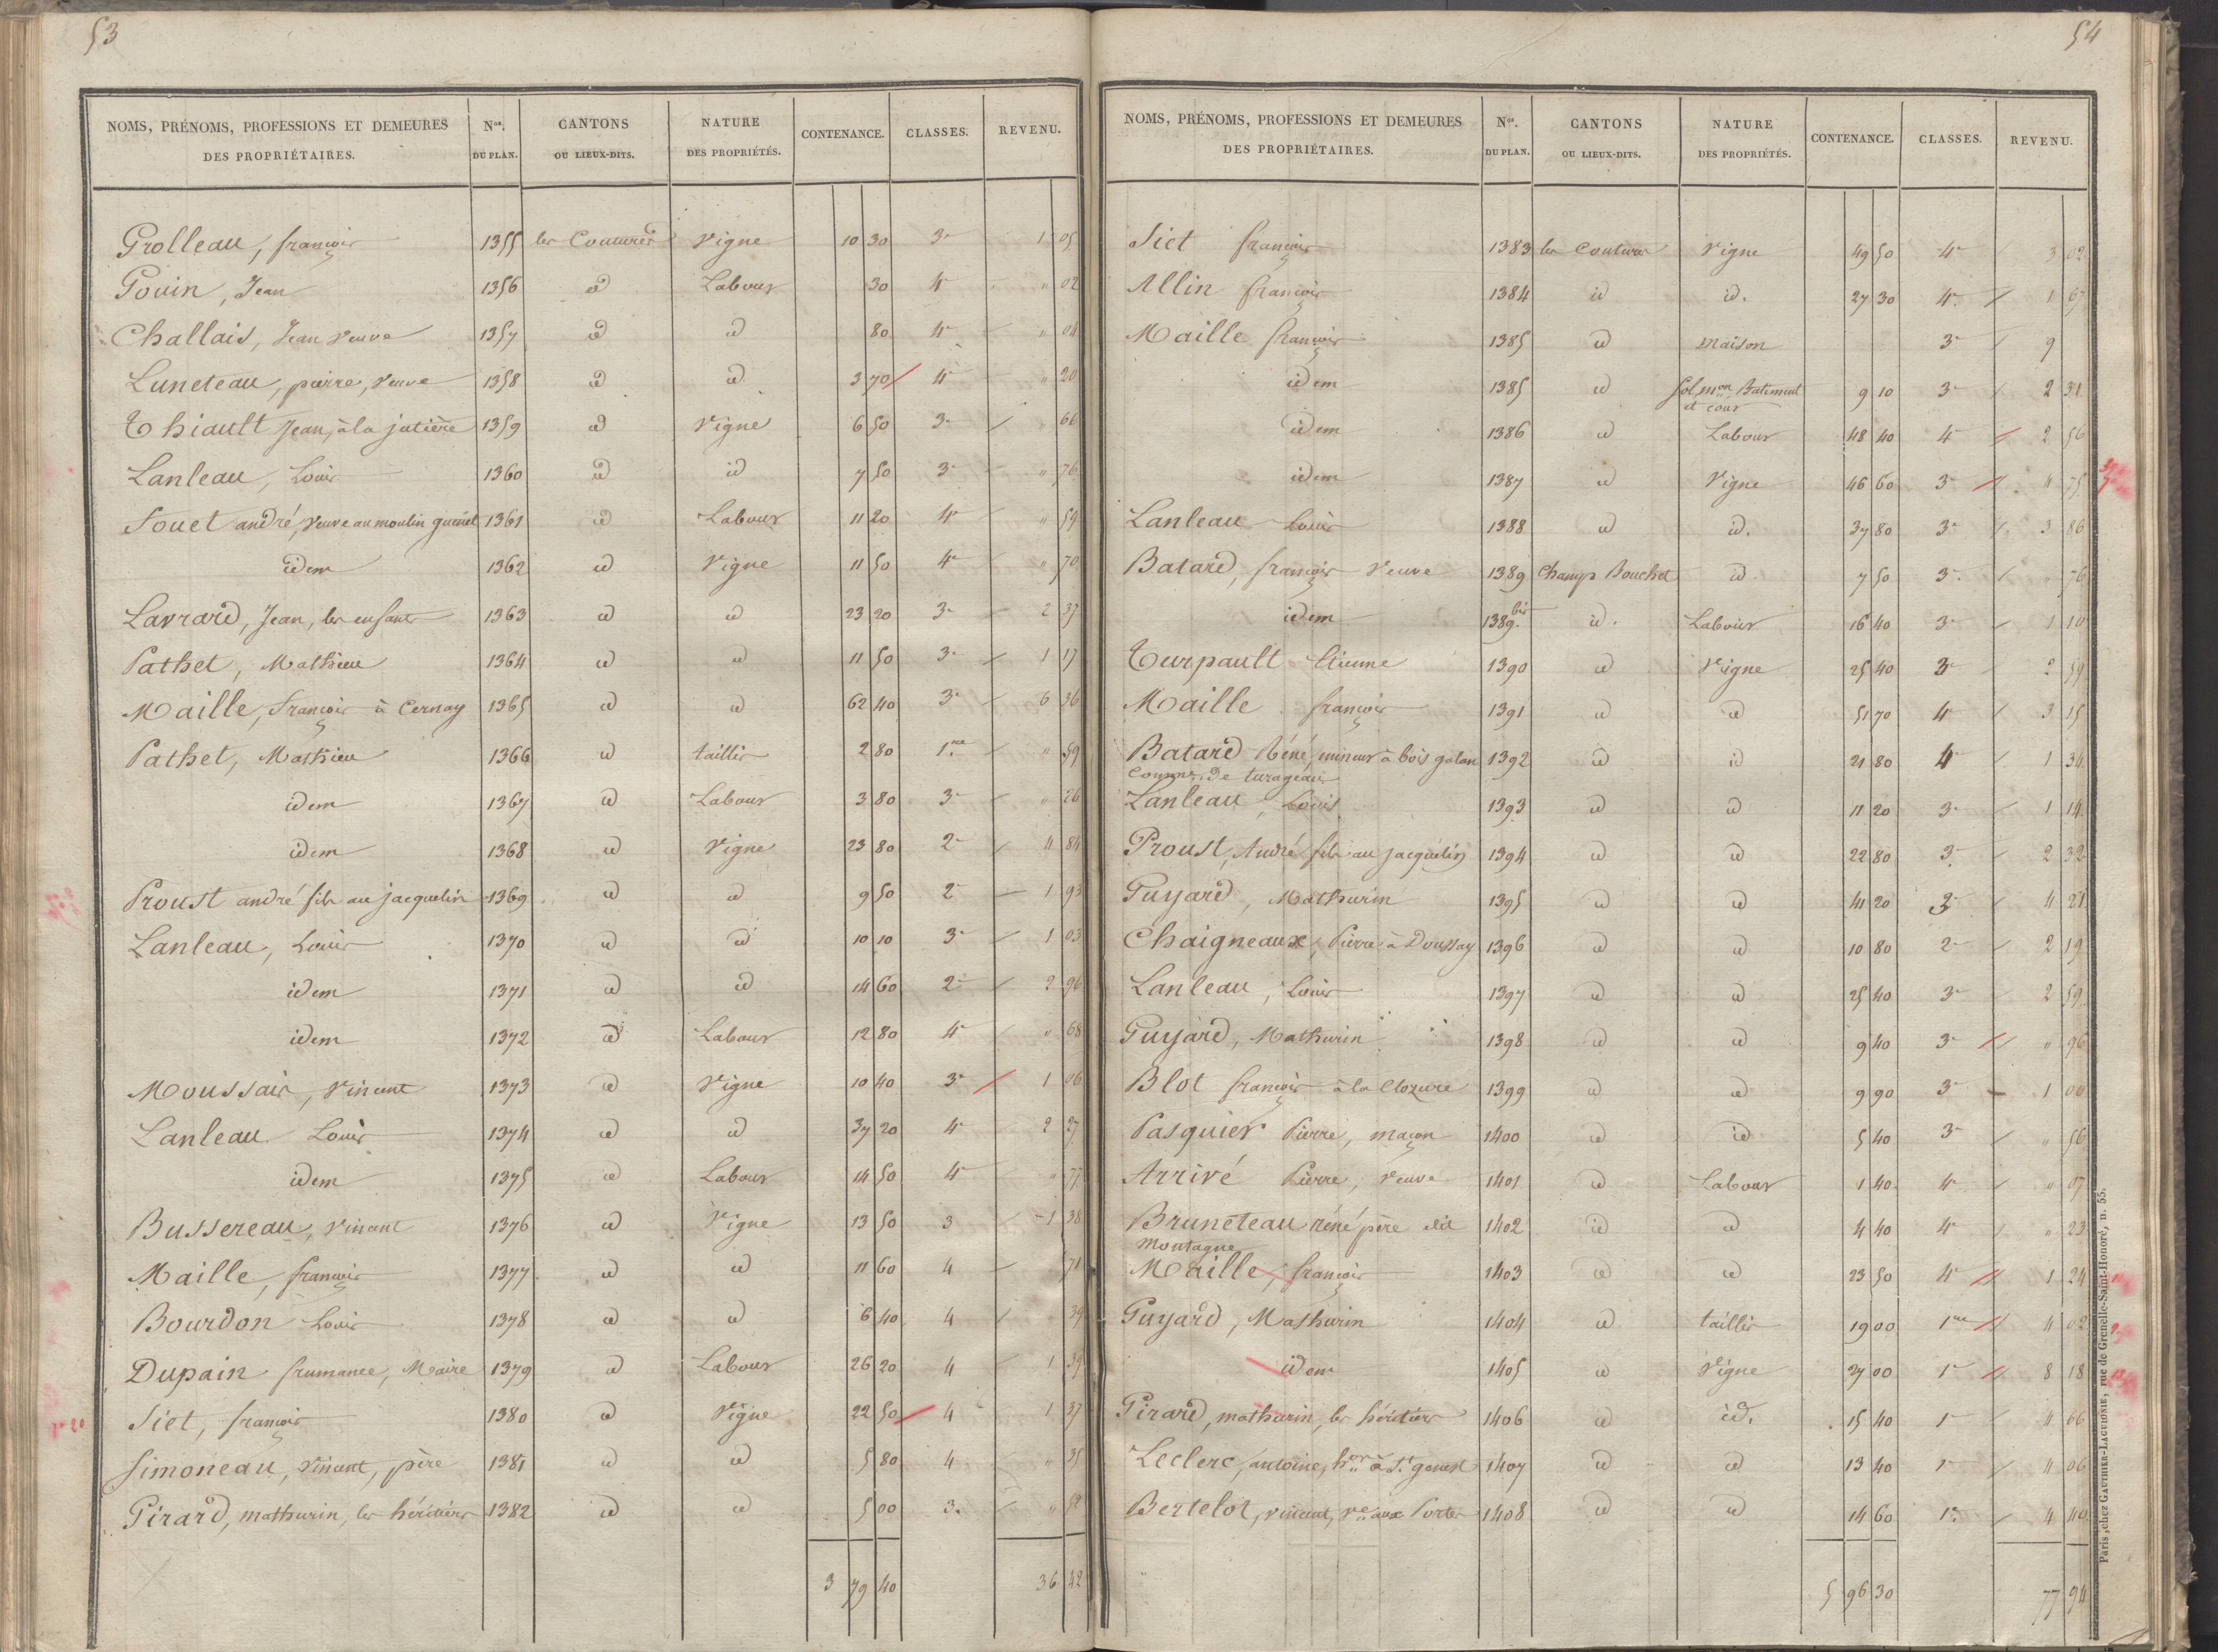 53
NOMS, PRÉNOMS, PROFESSIONS ET DEMEURES DES PROPRIÉTAIRES. Nos. DU PLAN. CANTONS OU LIEUX-DITS. NATURE DES PROPRIÉTÉS. CONTENANCE. CLASSES. REVENU.
Grolleau, françois 1355 les Coutures Vigne 10 30 3e 1 05
Gouin, Jean 1356 id Labour 30 4e " 02
Challais, Jean veuve 1357 id id 80 4e " 04
Luneteau, pierre, veuve 1358 id id 3 70 4e " 20
Thiault Jean, à la jutière 1359 id Vigne 6 50 3e " 66
Lanleau, Louis 1360 id id 7 50 3e " 76
Souet andré, veuve au moulin 1361 id Labour 11 20 4e " 59
idem 1362 id Vigne 11 50 4e " 70
Lavrard, Jean, les enfants 1363 id id 23 20 3e 2 37
Pathet, Mathieu 1364 id id 11 50 3e 1 17
Maille, François à Cernay 1365 id id 62 40 3e 6 36
Pathet, Mathieu 1366 id taillis 2 80 1re " 59
idem 1367 id Labour 3 80 3e " 26
idem 1368 id Vigne 23 80 2e 4 84
Proust andré fils au jacquelin 1369 id id 9 50 2e 1 93
Lanleau, Louis 1370 id id 10 10 3e 1 03
idem 1371 id id 14 60 2e 2 96
idem 1372 id Labour 12 80 4e " 68
Moussais, Vincent 1373 id Vigne 10 40 3e 1 06
Lanleau Louis 1374 id id 37 20 4e 2 27
idem 1375 id Labour 14 50 4e " 77
Bussereau, Vincent 1376 id Vigne 13 50 3 1 38
Maille, françois 1377 id id 11 60 4 71
Bourdon Louis 1378 id id 6 40 4 " 39
Dupain frumance, Maire 1379 id Labour 26 20 4 1 39
Siet, françois 1380 id Vigne 22 50 4 1 37
Simoneau, Vincent, père 1381 id id 5 80 4 " 35
Girard, mathurin, les héritiers 1382 id id 5 00 3e " 52
3 79 40 36 42
54
NOMS, PRÉNOMS, PROFESSIONS ET DEMEURES DES PROPRIÉTAIRES. Nos. DU PLAN. CANTONS OU LIEUX-DITS. NATURE DES PROPRIÉTÉS. CONTENANCE. CLASSES. REVENU.
Siet françois 1383 les Coutures Vigne 49 50 4e 3 02
Allin françois 1384 id id. 27 30 4e 1 67
Maille françois 1385 id maison 3e 9
idem 1385 id Sol, mon Batiment et cour 9 10 3e 2 31
idem 1386 id Labour 48 40 4e 2 56
idem 1387 id Vigne 46 60 3e 4 75
Lanleau Louis 1388 id id. 37 80 3e 3 86
Batard, françois Veuve 1389 Champ Bouchet id 7 50 3e " 76
idem 1389 bis id. Labour 16 40 3e 1 10
Turpault Etienne 1390 id Vigne 25 40 3e 2 59
Maille françois 1391 id id 51 70 4e 3 15
Batard Réné, mineur à bois galan 1392 id id 21 80 4e 1 34
Comne. de turageau
Lanleau, Louis 1393 id id 11 20 3e 1 14
Proust, André fils au jacquelin 1394 id id 22 80 3e 2 32
Guyard, Mathurin 1395 id id 41 20 3e 4 21
Chaigneaux, Pierre à Doussay 1396 id id 10 80 2e 2 19
Lanleau, Louis 1397 id id 25 40 3e 2 59
Guyard, Mathurin 1398 id id 9 40 3e " 96
Blot françois à la Clozure 1399 id id 9 90 3e 1 00
Pasquier Pierre, maçon 1400 id id 5 40 3e " 56
Arrivé Pierre, veuve 1401 id Labour 1 40 4e " 07
Bruneteau réné père dit 1402 id id 4 40 4e " 23
Montagne
Maille, françois 1403 id id 23 50 4e 1 24
Guyard, Mathurin 1404 id taillis 19 00 1re 4 02
idem 1405 id Vigne 27 00 1e 8 18
Girard, mathurin, les héritiers 1406 id id. 15 40 1e 4 66
Leclerc, antoine, hers à St genest 1407 id id 13 40 1e 4 06
Bertelot, vincent, ve aux Portes 1408 id id 14 60 1e 4 40
5 96 30 77 94
Paris, chez GAUTHIER-LAGUIONIE, rue de Grenelle-Saint-Honoré, n. 55.